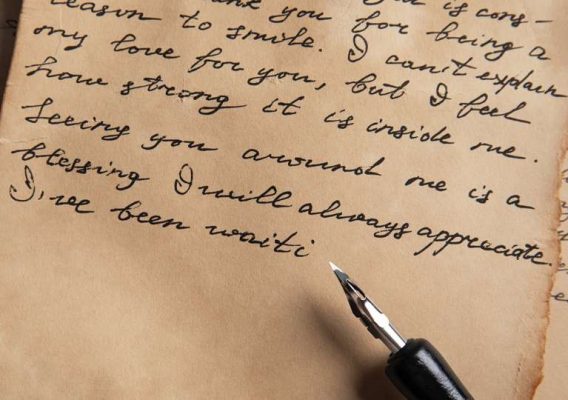 is cons-
you for being a
reason to smile. I can't explain
my love for you, but I feel
how strong it is inside me.
Seeing you around me is a
blessing I will always appreciate.
I've been waiti